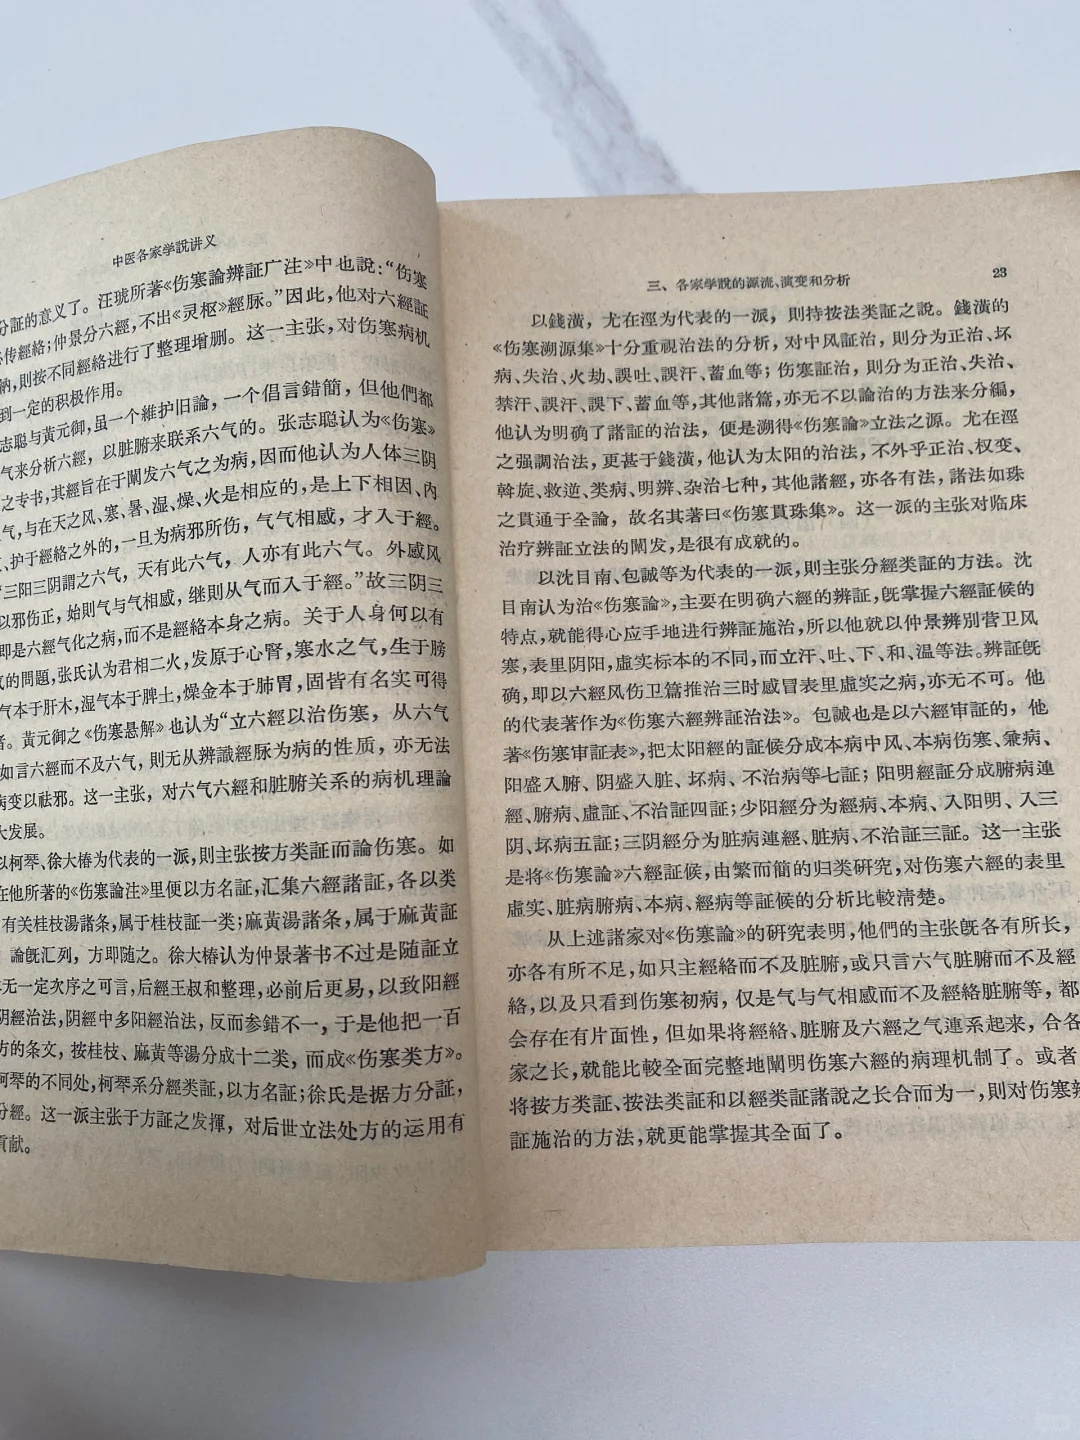 中医各家学說讲义
分証的意义了。汪琥所著《伤寒論辨証广注》中也說:“伤寒
传經絡;仲景分六經,不出《灵枢》經脉。”因此,他对六經証
則按不同經絡进行了整理增删。这一主张,对伤寒病机
到一定的积极作用。
志聪与黃元御,虽一个維护旧論,一个倡言錯簡,但他們都
气来分析六經,以脏腑来联系六气的。张志聪认为《伤寒》
之专书,其經旨在于闡发六气之为病,因而他认为人体三阴
气,与在天之风、寒、暑、湿、燥、火是相应的,是上下相因、內
、护于經絡之外的,一旦为病邪所伤,气气相感,才入于經。
“三阳三阴謂之六气,天有此六气,人亦有此六气。外感风
以邪伤正,始則气与气相感,继則从气而入于經。”故三阴三
即是六經气化之病,而不是經絡本身之病。关于人身何以有
的問題,张氏认为君相二火,发原于心腎,寒水之气,生于膀
气本于肝木,湿气本于脾土,燥金本于肺胃,固皆有名实可得
者。黃元御之《伤寒悬解》也认为“立六經以治伤寒,从六气
如言六經而不及六气,則无从辨識經脉为病的性质,亦无法
病变以祛邪。这一主张,对六气六經和脏腑关系的病机理論
大发展。
以柯琴、徐大椿为代表的一派,則主张按方类証而論伤寒。如
在他所著的《伤寒論注》里便以方名証,汇集六經諸証,各以类
有关桂枝湯諸条,属于桂枝証一类;麻黃湯諸条,属于麻黃証
論旣汇列,方即随之。徐大椿认为仲景著书不过是随証立
无一定次序之可言,后經王叔和整理,必前后更易,以致阳經
阴經治法,阴經中多阳經治法,反而参錯不一,于是他把一百
方的条文,按桂枝、麻黃等湯分成十二类,而成《伤寒类方》。
柯琴的不同处,柯琴系分經类証,以方名証;徐氏是据方分証,
分經。这一派主张于方証之发揮,对后世立法处方的运用有
貢献。
三、各家学說的源流、演变和分析 23
以錢潢,尤在涇为代表的一派,則持按法类証之說。錢潢的
《伤寒溯源集》十分重視治法的分析,对中风証治,則分为正治、坏
病、失治、火劫、誤吐、誤汗、蓄血等;伤寒証治,則分为正治、失治、
禁汗、誤汗、誤下、蓄血等,其他諸篇,亦无不以論治的方法来分編,
他认为明确了諸証的治法,便是溯得《伤寒論》立法之源。尤在涇
之强調治法,更甚于錢潢,他认为太阳的治法,不外乎正治、权变、
斡旋、救逆、类病、明辨、杂治七种,其他諸經,亦各有法,諸法如珠
之貫通于全論,故名其著曰《伤寒貫珠集》。这一派的主张对临床
治疗辨証立法的闡发,是很有成就的。
以沈目南、包誠等为代表的一派,則主张分經类証的方法。沈
目南认为治《伤寒論》,主要在明确六經的辨証,旣掌握六經証候的
特点,就能得心应手地进行辨証施治,所以他就以仲景辨別营卫风
寒,表里阴阳,虛实标本的不同,而立汗、吐、下、和、温等法。辨証旣
确,即以六經风伤卫篇推治三时感冒表里虛实之病,亦无不可。他
的代表著作为《伤寒六經辨証治法》。包誠也是以六經审証的,他
著《伤寒审証表》,把太阳經的証候分成本病中风、本病伤寒、兼病、
阳盛入腑、阴盛入脏、坏病、不治病等七証;阳明經証分成腑病連
經、腑病、虛証、不治証四証;少阳經分为經病、本病、入阳明、入三
阴、坏病五証;三阴經分为脏病連經、脏病、不治証三証。这一主张
是将《伤寒論》六經証候,由繁而簡的归类研究,对伤寒六經的表里
虛实、脏病腑病、本病、經病等証候的分析比較清楚。
从上述諸家对《伤寒論》的研究表明,他們的主张旣各有所长,
亦各有所不足,如只主經絡而不及脏腑,或只言六气脏腑而不及經
絡,以及只看到伤寒初病,仅是气与气相感而不及經絡脏腑等,都
会存在有片面性,但如果将經絡、脏腑及六經之气連系起来,合各
家之长,就能比較全面完整地闡明伤寒六經的病理机制了。或者
将按方类証、按法类証和以經类証諸說之长合而为一,則对伤寒辨
証施治的方法,就更能掌握其全面了。